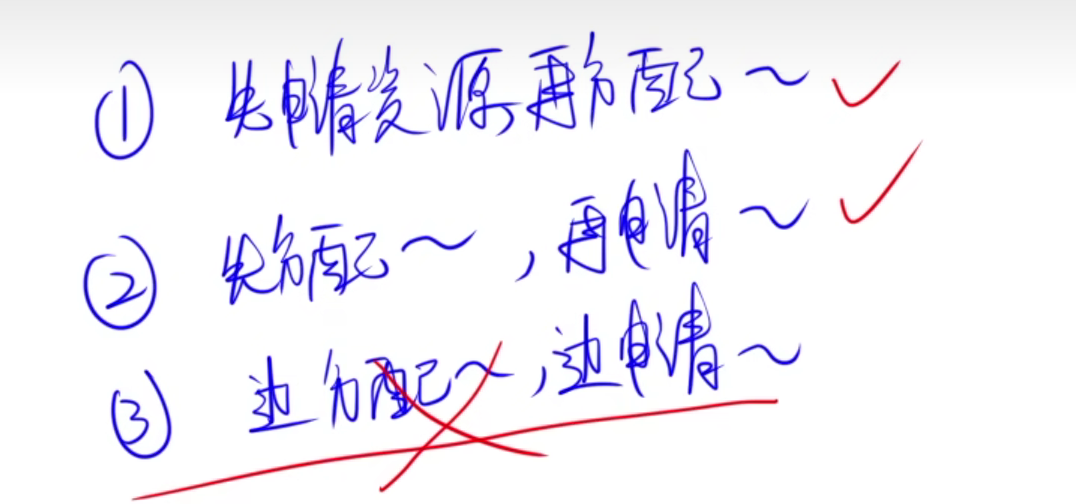 ① 先申请资源,再分配~
② 先分配~,再申请~
③ 边分配~,边申请~